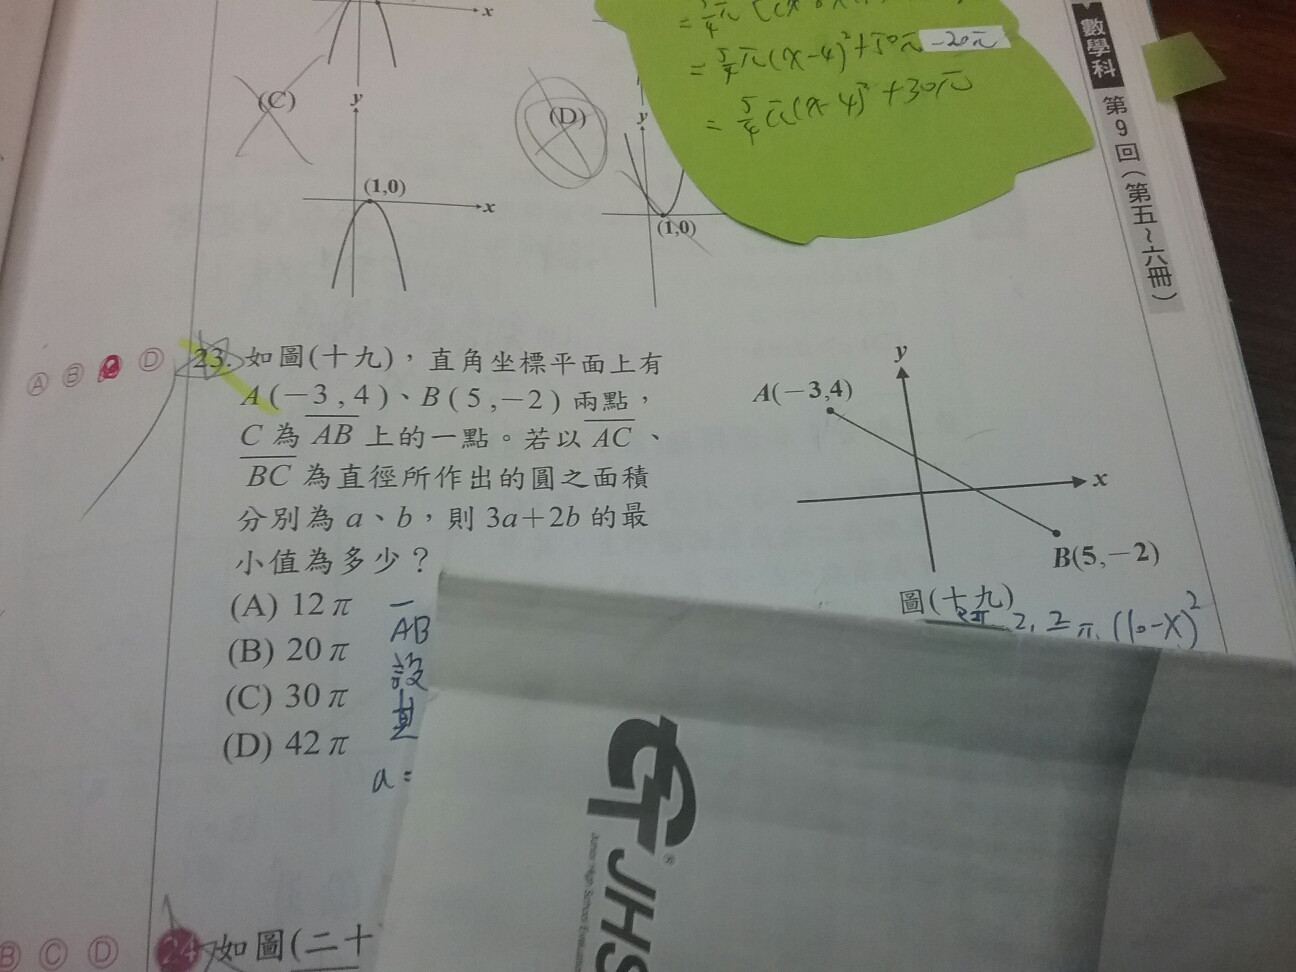 x
(C)
y
(1,0)
x
(D)
y
(1,0)
= 5/4 π(x-4)²+50π-20π
= 5/4 π(x-4)²+30π
數學科
第9回(第五~六冊)
Ⓐ Ⓑ Ⓓ
23. 如圖(十九),直角坐標平面上有
A(-3,4)、B(5,-2)兩點,
C為AB上的一點。若以AC、
BC為直徑所作出的圓之面積
分別為a、b,則3a+2b的最
小值為多少?
(A) 12π
(B) 20π
(C) 30π
(D) 42π
AB
設
直
a=
y
A(-3,4)
x
B(5,-2)
圖(十九)
(10-x)²
JHS
Junior High School
Ⓑ Ⓒ Ⓓ
24 如圖(二十